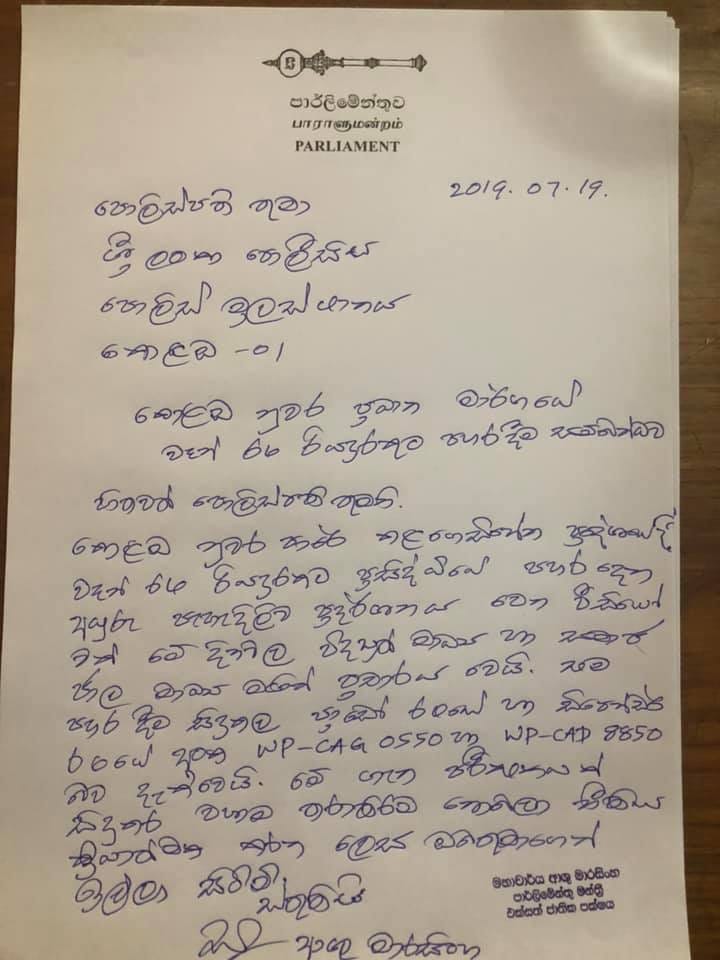 පාර්ලිමේන්තුව
பாராளுமன்றம்
PARLIAMENT
2019.07.19.
පොලිස්පති තුමා
ශ්‍රී ලංකා පොලීසිය
පොලිස් මූලස්ථානය
කොළඹ -01
කොළඹ නුවර ප්‍රධාන මාර්ගයේ
වෑන් රථ රියදුරකුට පහරදීම සම්බන්ධව
හිතවත් පොලිස්පතිතුමනි.
කොළඹ නුවර පාරේ කළගෙඩිහේන ප්‍රදේශයේදී
වෑන් රථ රියදුරකුට ප්‍රසිද්ධියේ පහර දෙන
අයුරු පැහැදිලිව ප්‍රදර්ශනය වෙන වීඩියෝ
වක් මේ දිනවල විද්‍යුත් මාධ්‍ය හා සමාජ
ජාල මාධ්‍ය මගින් ප්‍රචාරය වෙයි. සම
පහර දීම සිදුකල රථයේ හා ඩිෆෙන්ඩර්
රථයේ අංක WP-CAG 0550 හා WP-CAD 8850
බව දැක්වෙයි. මේ ගැන පරීක්ෂණයක්
සිදුකර වහාම තරාතිරම නොබලා නීතිය
ක්‍රියාත්මක කරන ලෙස ඔබතුමාගෙන්
ඉල්ලා සිටිමි.
ස්තුතියි
මහාචාර්ය ආශු මාරසිංහ
පාර්ලිමේන්තු මන්ත්‍රී
එක්සත් ජාතික පක්ෂය
ආශු මාරසිංහ